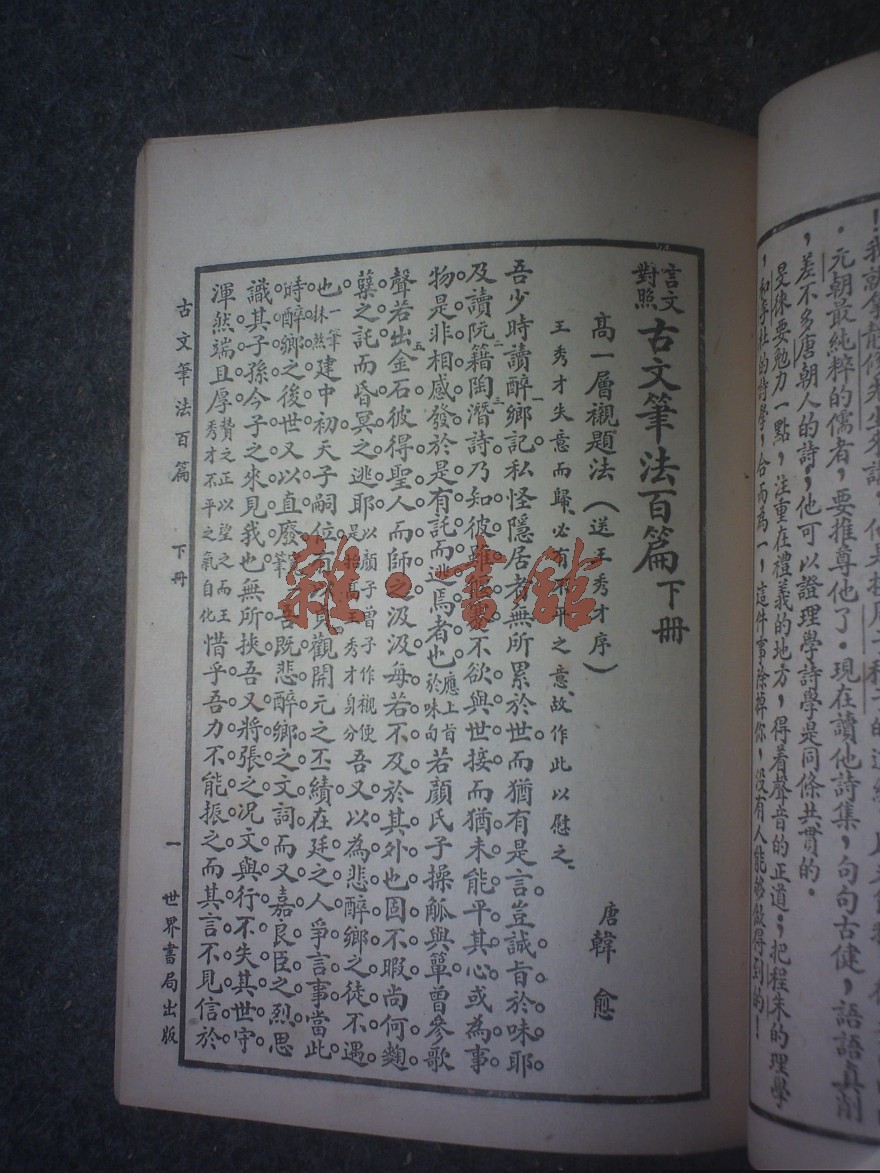 ．元朝最純粹的儒者，要推尊他了．現在讀他詩集，句句古健，語語真
，差不多唐朝人的詩，他可以證理學詩學是同條共貫的．
旻徠要勉力一點，注重在禮義的地方，得着聲音的正道；把程朱的理學
，和李杜的詩學，合而為一，這件事除掉你，沒有人能够做得到的！
言文對照 古文筆法百篇 下冊
高一層襯題法（送王秀才序） 唐 韓愈
王秀才失意而歸、必有不平之意、故作此以慰之、
吾少時讀醉鄉記私怪隱居者無所累於世而猶有是言豈誠旨於味耶
及讀阮籍陶潛詩乃知彼雖不欲與世接而猶未能平其心或為事
物是非相感發於是有託而逃焉者也應上旨於味向若顏氏子操觚與簞曾參歌
聲若出金石彼得聖人而師之汲汲每若不及於其外也固不暇尚何麴
櫱之託而昏冥之逃耶以顏子曾子作襯便是抬高王秀才身分吾又以為悲醉鄉之徒不遇
也一筆抹煞建中初天子嗣位有貞觀開元之丕績在廷之人爭言事當此
時醉鄉之後世又以直廢吾既悲醉鄉之文詞而又嘉良臣之烈思
識其子孫今子之來見我也無所挾吾又將張之况文與行不失其世守
渾然端且厚贊之正以望之而王秀才不平之氣自化惜乎吾力不能振之而其言不見信於
古文筆法百篇 下冊 一 世界書局出版
雜·書館